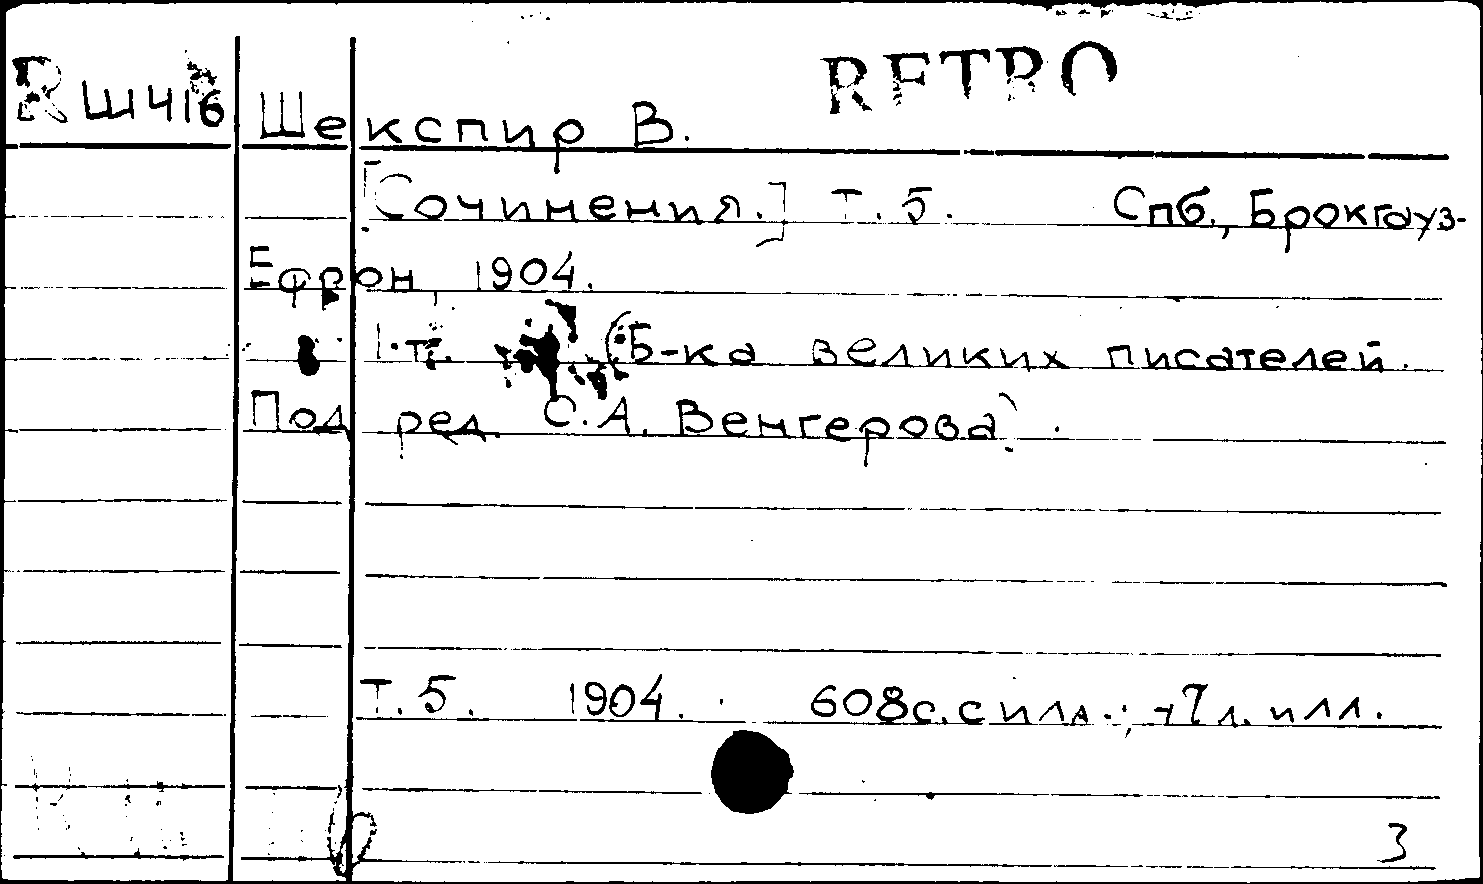 RETRO
R Ш416 Шекспир В.
[Сочинения.] Т. 5. Спб., Брокгауз-
Ефрон, 1904.
1 т. (Б-ка великих писателей.
Под ред. С.А. Венгерова).
Т. 5. 1904. 608с. с илл.; 7 л. илл.
3